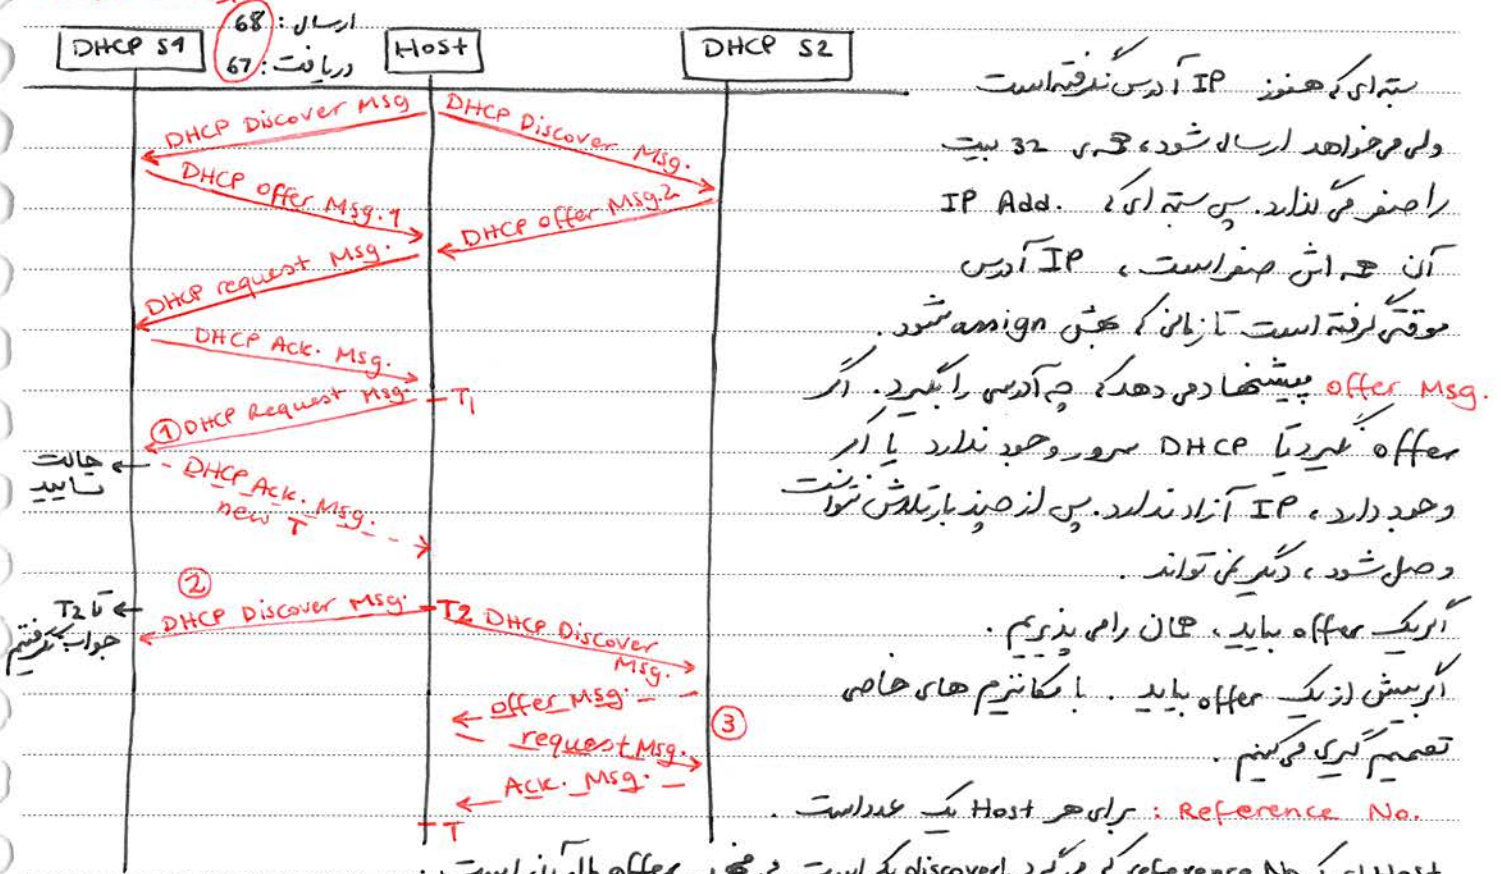 ارسال : 68
دریافت : 67
DHCP S1
Host
DHCP S2
DHCP Discover Msg
DHCP Discover Msg.
DHCP offer Msg.1
DHCP offer Msg.2
DHCP request Msg.
DHCP Ack. Msg.
T1
① DHCP Request Msg.
حالت
تایید
DHCP Ack. Msg.
new T
②
تا T2
جواب نگرفتیم
DHCP Discover Msg.
T2
DHCP Discover
Msg.
offer Msg.
③
request Msg.
Ack. Msg.
T
بسته ای که هنوز IP آدرس نگرفته است
ولی می خواهد ارسال شود، همه ی 32 بیت
را صفر می گذارد. پس بسته ای که IP Add.
آن همه اش صفر است، IP آدرس
موقتی گرفته است تا زمانی که بهش assign شود.
offer Msg. پیشنهاد می دهد که چه آدرسی را بگیرد. اگر
offer نگیرد یا DHCP سرور وجود ندارد یا اگر
وجود دارد، IP آزاد ندارد. پس از چند بار تلاش نتوانست
وصل شود، دیگر نمی تواند.
اگر یک offer بیاید، همان را می پذیریم.
اگر بیش از یک offer بیاید. با مکانیزم های خاصی
تصمیم گیری می کنیم.
Reference No. : برای هر Host یک عدد است.
Host ای که reference No